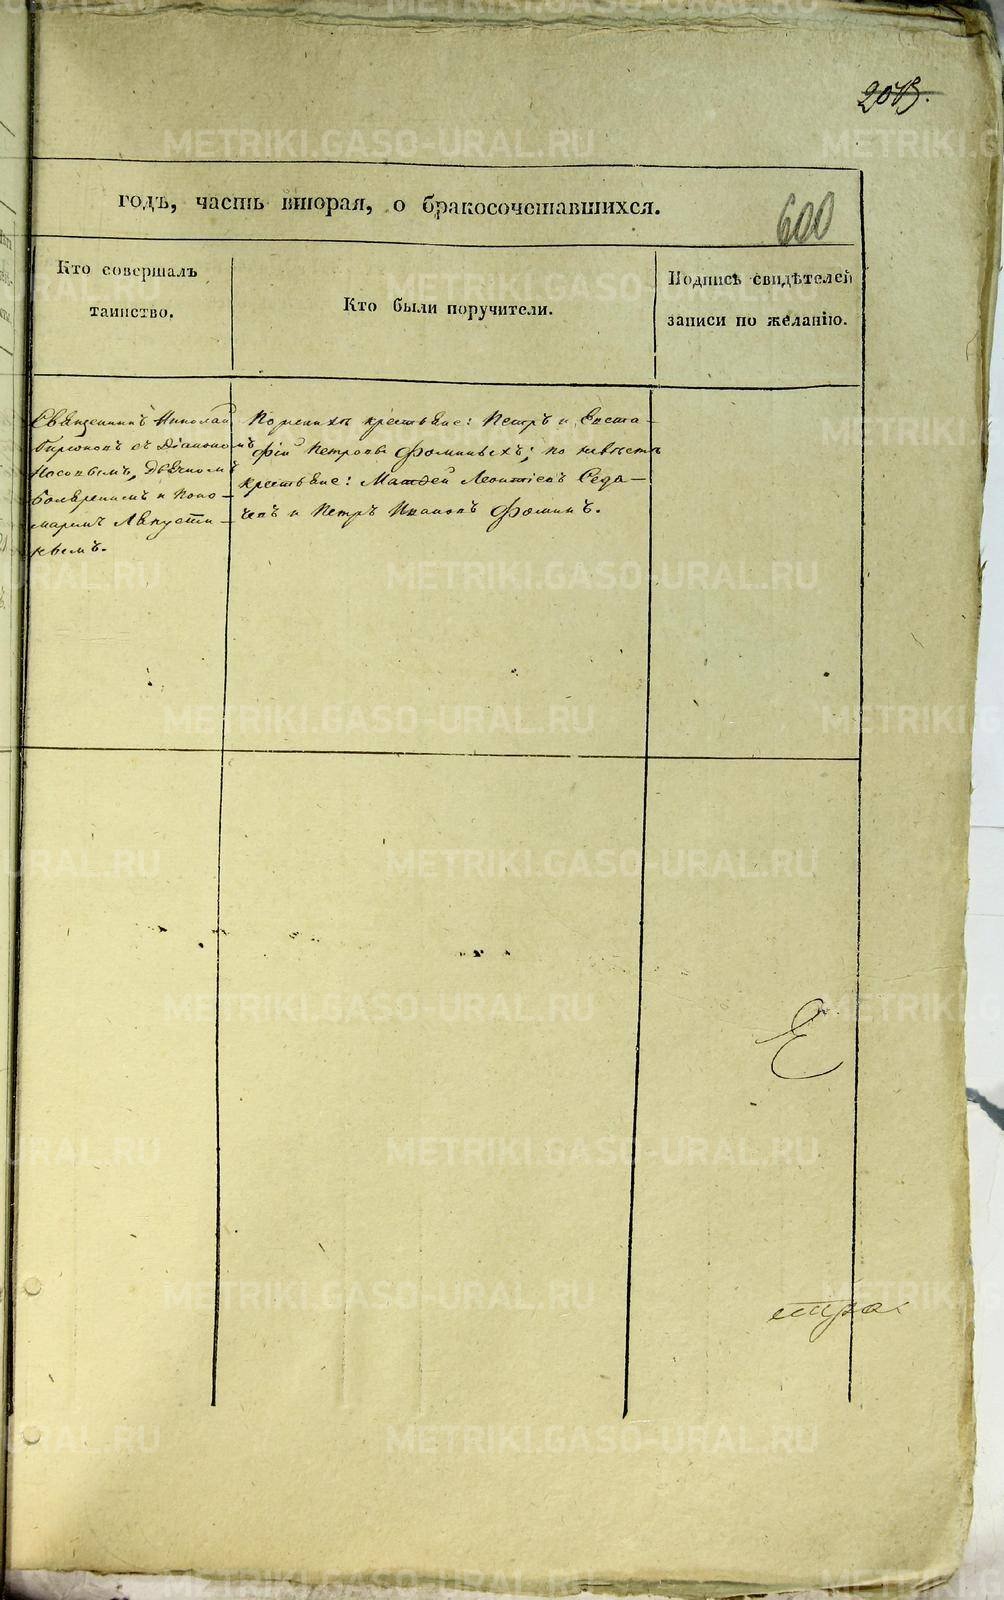 2013.
годъ, часть вторая, о бракосочетавшихся.
600
Кто совершалъ
таинство.
Кто были поручители.
Подпись свидѣтелей
записи по желанію.
Священникъ Николай
съ Діакономъ
Носовымъ, Дьячкомъ
и Поно-
маремъ Августи-
новымъ.
По женихѣ крестьяне: Петръ и Евста-
фій Петровы Фоминыхъ; по невѣстѣ
крестьяне: Матвей Леонтіевъ Седа-
чевъ и Петръ Ивановъ Фоминъ.
METRIKI.GASO-URAL.RU